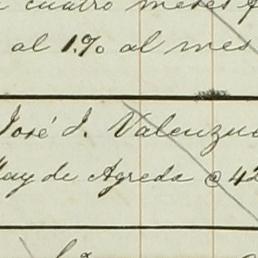 cuatro meses
al 1% al mes
José J. Valenzue
Hay de Agreda @ 42